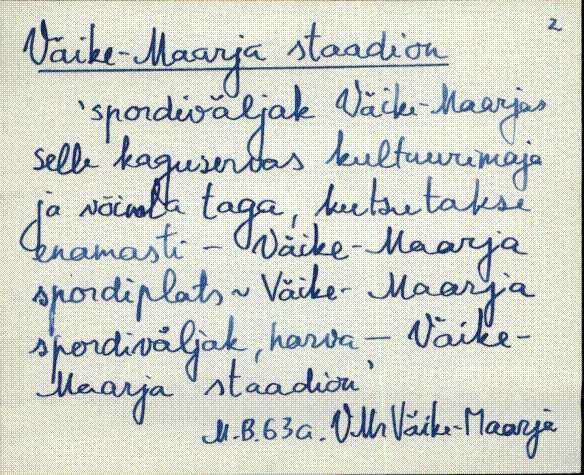 2
Väike-Maarja staadion
'spordiväljak Väike-Maarjas
selle kaguservas kultuurimaja
ja võimla taga, kutsutakse
enamasti – Väike-Maarja
spordiplats ~ Väike-Maarja
spordiväljak, harva – Väike-
Maarja staadion'
M.B. 63a. VMr Väike-Maarja